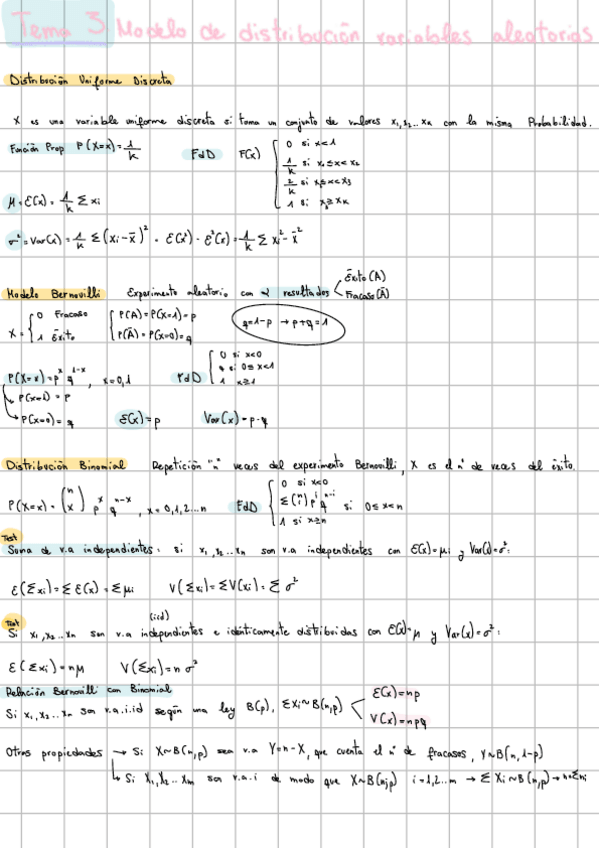 Tema 3 Modelo de distribución variables aleatorias
Distribución Uniforme Discreta
X es una variable uniforme discreta si toma un conjunto de valores x₁, x₂... xₖ con la misma Probabilidad.
Función Prop P(X=x) = 1/k FdD F(x) { 0 si x<1
1/k si x₁≤x<x₂
2/k si x₂≤x<x₃
1 si x≥xₖ
μ = E(x) = 1/k Σ xi
σ² = Var(x) = 1/k Σ (xi - x̄)² = E(x²) - E²(x) = 1/k Σ xi² - x̄²
Modelo Bernouilli Experimento aleatorio con 2 resultados < Éxito (A)
Fracaso (Ā)
X = { 0 Fracaso
1 Éxito
{ P(A) = P(X=1) = p
P(Ā) = P(X=0) = q
q = 1-p → p+q = 1
P(X=x) = pˣ q¹⁻ˣ, x = 0,1 FdD { 0 si x<0
q si 0≤x<1
1 x≥1
→ P(x=1) = p
→ P(x=0) = q E(x) = p Var(x) = p·q
Distribución Binomial Repetición "n" veces del experimento Bernouilli, X es el nº de veces del éxito.
P(X=x) = (n x) pˣ qⁿ⁻ˣ, x = 0,1,2...n FdD { 0 si x<0
Σ (n i) pⁱ qⁿ⁻ⁱ si 0≤x<n
1 si x≥n
Test
Suma de v.a independientes: si x₁, x₂... xₙ son v.a independientes con E(x) = μi y Var(x) = σ²:
E(Σxi) = Σ E(x) = Σ μi V(Σxi) = Σ V(xi) = Σ σ²
Test
(iid)
Si x₁, x₂... xₙ son v.a independientes e idénticamente distribuidas con E(x)=μ y Var(x) = σ²:
E(Σxi) = nμ V(Σxi) = n σ²
Relación Bernouilli con Binomial
Si x₁, x₂... xₙ son v.a.i.id según una ley B(p), ΣXi ~ B(n,p) < E(x) = np
V(x) = npq
Otras propiedades → Si X~B(n,p) sea v.a Y = n-X, que cuenta el nº de fracasos, Y~B(n, 1-p)
→ Si X₁, X₂... Xₘ son v.a.i de modo que X~B(nᵢ,p) i=1,2...m → Σ Xi ~ B(n,p) → n = Σ ni